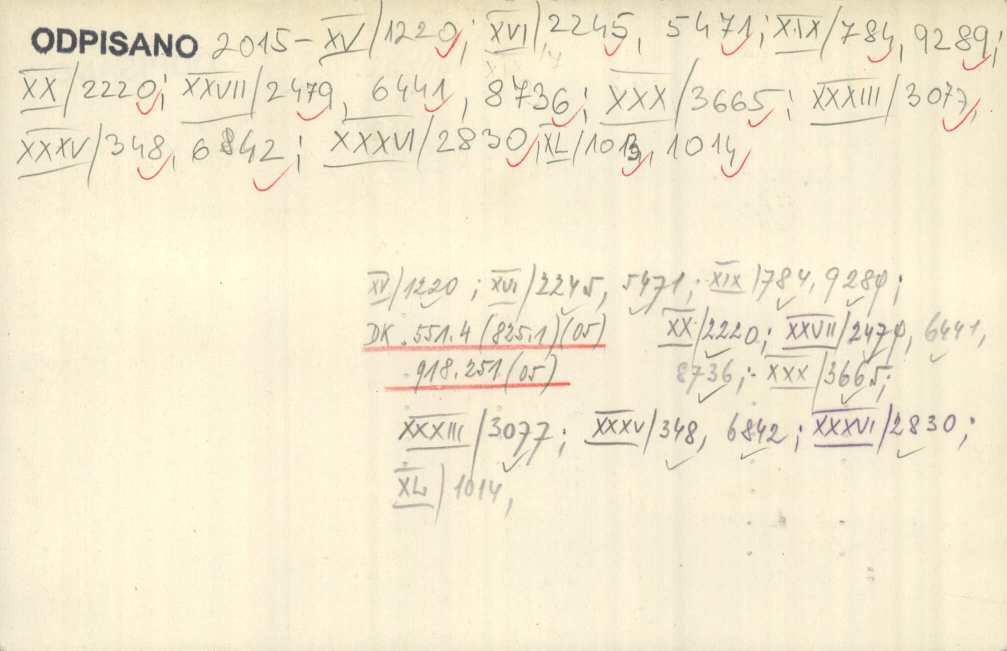 ODPISANO 2015 - XV/1220; XVI/2245, 5471; XIX/784, 9289;
XX/2220; XXVII/2479, 6441, 8736; XXX/3665; XXXIII/3077,
XXXV/348, 6842; XXXVI/2830, XL/1013, 1014
XV/1220; XVI/2245, 5471; XIX/784, 9289;
DK. 551.4 (825.1)(05) XX/2220; XXVII/2479, 6441,
918.251 (05) 8736; XXX/3665;
XXXIII/3077; XXXV/348, 6842; XXXVI/2830;
XL/1014,